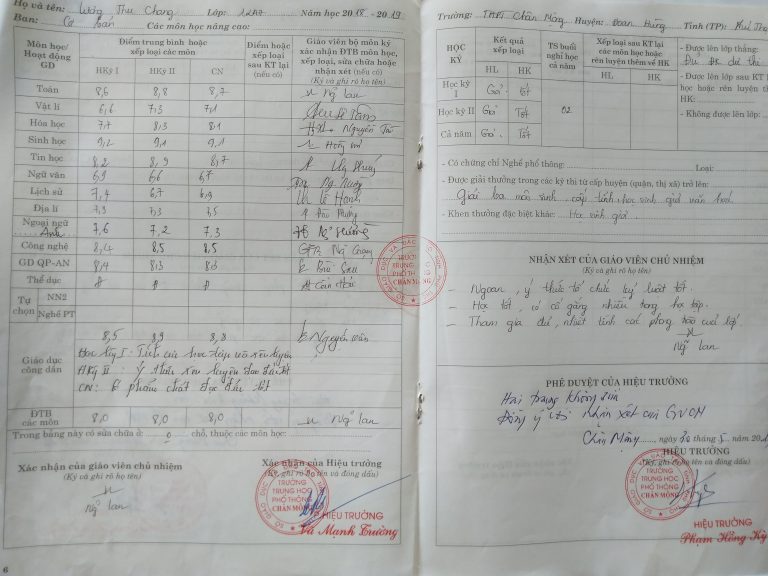 Họ và tên: Lương Thu Chang Lớp: 12A7 Năm học 2018 - 2019
Ban: Cơ bản Các môn học nâng cao:
Môn học/ Hoạt động GD
Điểm trung bình hoặc xếp loại các môn
HKỳ I HKỳ II CN
Điểm hoặc xếp loại sau KT lại (nếu có)
Giáo viên bộ môn ký xác nhận ĐTB môn học, xếp loại, sửa chữa hoặc nhận xét (nếu có)
(Ký và ghi rõ họ tên)
Toán 8,6 8,8 8,7 Ng Lan
Vật lí 6,6 7,3 7,1
Hóa học 7,7 8,3 8,1 Nguyễn
Sinh học 9,2 9,1 9,1
Tin học 8,2 8,9 8,7
Ngữ văn 6,9 6,6 6,7
Lịch sử 7,4 6,7 6,9
Địa lí 7,3 7,3 7,3
Ngoại ngữ Anh 7,6 7,2 7,3
Công nghệ 8,4 8,5 8,5
GD QP-AN 8,4 8,3 8,3
Thể dục Đ Đ Đ
Tự chọn
NN2
Nghề PT
Giáo dục công dân
8,5 8,9 8,8
Học kỳ I: Tích cực học tập và rèn luyện
HKỳ II: Ý thức rèn luyện đạo đức tốt
CN: Phẩm chất đạo đức tốt
ĐTB các môn 8,0 8,0 8,0 Ng Lan
Trong bảng này có sửa chữa ở: 0 chỗ, thuộc các môn học:
Xác nhận của giáo viên chủ nhiệm
(Ký và ghi rõ họ tên)
Ng Lan
Xác nhận của Hiệu trưởng
(Ký, ghi rõ họ tên và đóng dấu)
TRƯỜNG TRUNG HỌC PHỔ THÔNG CHÂN MỘNG
P.HIỆU TRƯỞNG
Vũ Mạnh Trường
6
Trường: THPT Chân Mộng Huyện: Đoan Hùng Tỉnh (TP): Phú Thọ
HỌC KỲ
Kết quả xếp loại
HL HK
TS buổi nghỉ học cả năm
Xếp loại sau KT lại các môn học hoặc rèn luyện thêm về HK
HL HK
Học kỳ I Giỏi Tốt
Học kỳ II Giỏi Tốt 02
Cả năm Giỏi Tốt
- Được lên lớp thẳng:
Đủ ĐK dự thi
- Được lên lớp sau KT
học hoặc rèn luyện th
HK:
- Không được lên lớp:
- Có chứng chỉ Nghề phổ thông: Loại:
- Được giải thưởng trong các kỳ thi từ cấp huyện (quận, thị xã) trở lên:
Giải ba môn sinh cấp tỉnh, học sinh giỏi văn hoá
- Khen thưởng đặc biệt khác: Học sinh giỏi
NHẬN XÉT CỦA GIÁO VIÊN CHỦ NHIỆM
(Ký và ghi rõ họ tên)
- Ngoan, ý thức tổ chức kỷ luật tốt.
- Học tốt, có cố gắng nhiều trong học tập.
- Tham gia đủ, nhiệt tình các phong trào của lớp
Ng Lan
TRƯỜNG TRUNG HỌC PHỔ THÔNG CHÂN MỘNG
PHÊ DUYỆT CỦA HIỆU TRƯỞNG
Hai trang không sửa
Đồng ý với nhận xét của GVCN
Chân Mộng, ngày 28 tháng 5 năm 20
HIỆU TRƯỞNG
(Ký, ghi rõ họ tên và đóng dấu)
TRƯỜNG TRUNG HỌC PHỔ THÔNG CHÂN MỘNG
HIỆU TRƯỞNG
Phạm Hồng Kỳ